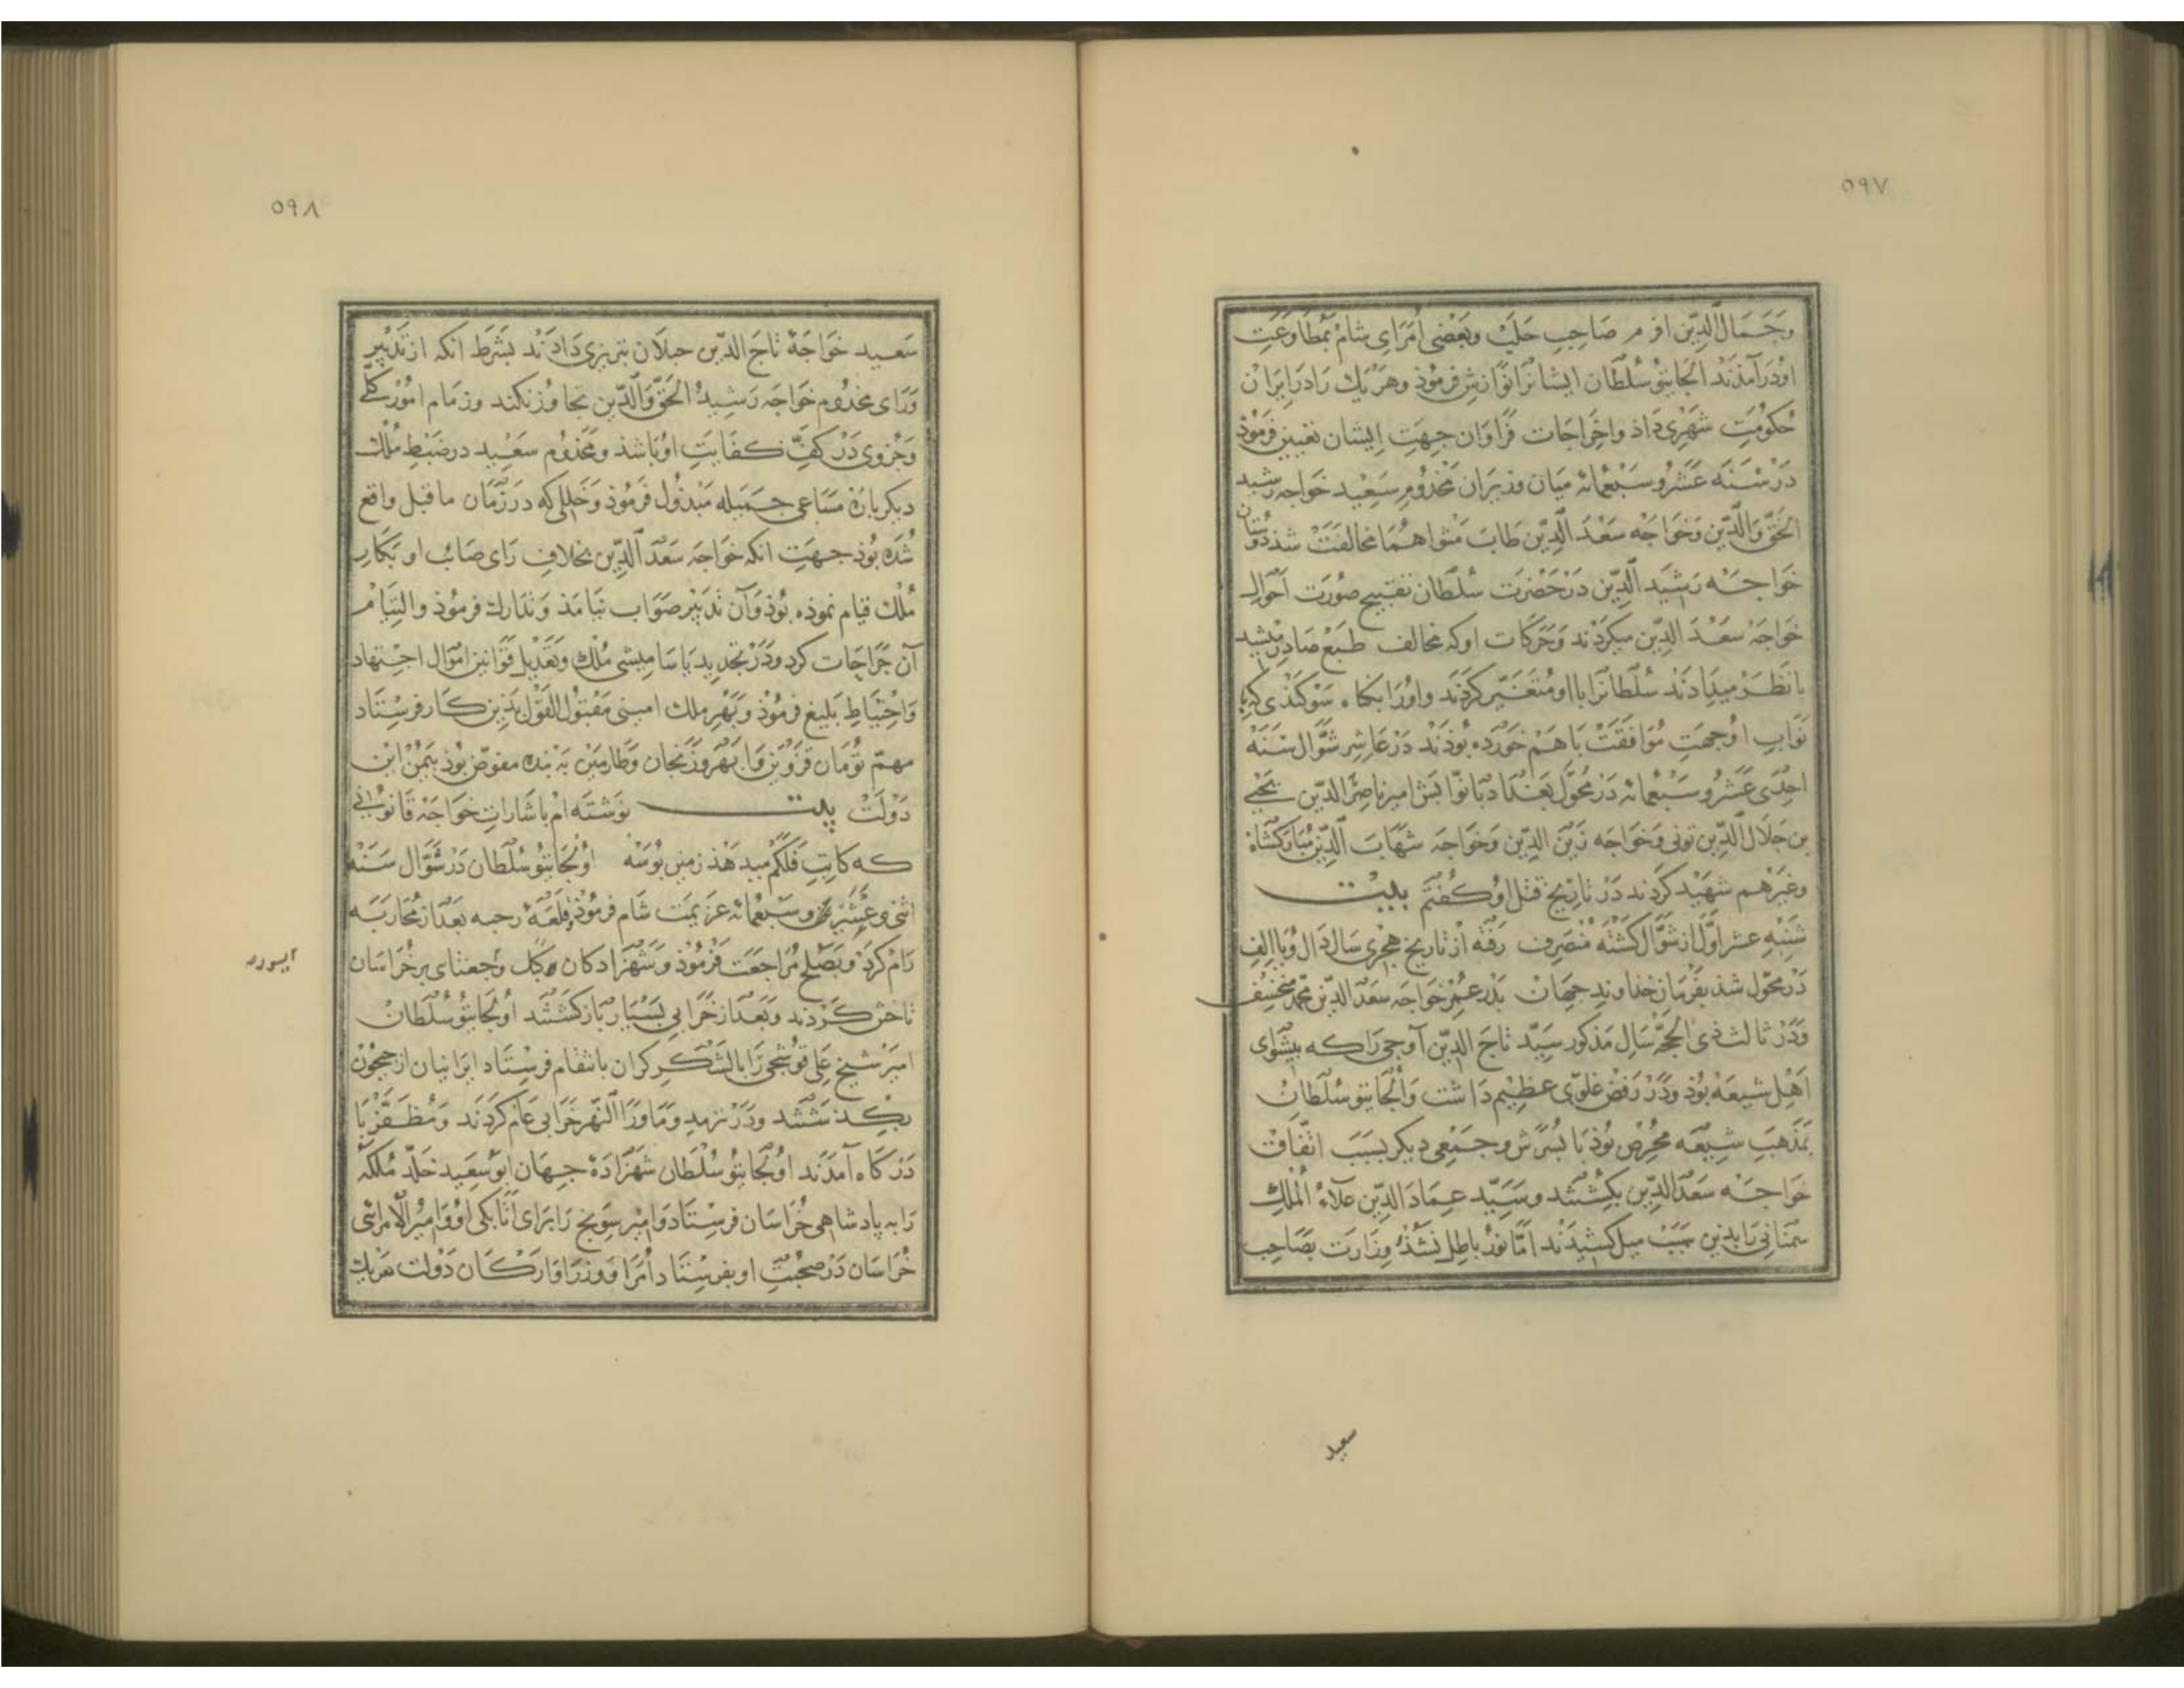 ۵۹۷
وجمال الدین افرم صاحب حلب وبعضی امرای شام بمطاوعت
اودرآمذند الجایتو سلطان ایشانرا نوازش فرموذ وهریك را در ایران
حکومت شهری داذ واخراجات فراوان جهت ایشان تعیین فرموذ
در سنه عشر وسبعمائه میان وزیران مخدوم سعید خواجه رشید
الحق والدین وخواجه سعد الدین طاب مثواهما مخالفت شذ دوستان
خواجه رشید الدین در حضرت سلطان تقبیح صورت احوال
خواجه سعد الدین میکردند وحرکات اوکه مخالف طبع صادر میشد
بانظر میدادند سلطانرا بااو متغیر کردند واورا بکناه سوکندی که با
نواب اوجهت موافقت باهم خورده بوذند در عاشر شوال سنه
احدی عشر وسبعمائه در محول بغداد بانوابش امیر ناصر الدین یحیی
بن جلال الدین تونی وخواجه زین الدین وخواجه شهاب الدین مبارکشاه
وغیرهم شهید کردند در تاریخ قتل او کفتم بیت
شنبه عشر اول از شوال کشته منصرف رفته از تاریخ هجری سال ذال ویا الف
در محول شذ بفرمان خذاوند جهان بدر عمر خواجه سعد الدین محمد منخسف
ودر ثالث ذی الحجه سال مذکور سید تاج الدین آوجی را که پیشوای
اهل شیعه بوذ ودر رفض غلوی عظیم داشت والجایتو سلطان
بمذهب شیعه محرض بوذ با پسرش وجمعی دیکر بسبب اتفاق
خواجه سعد الدین بکشتند وسید عماد الدین علاء الملك
سمنانی را بذین سبب میل کشیدند اما نور باطل نشذ وزارت بصاحب
سعید
۵۹۸
سعید خواجه تاج الدین جیلان تبریزی دادند بشرط انکه از تدبیر
ورای مخدوم خواجه رشید الحق والدین تجاوز نکند وزمام امور کلی
وجزوی در کف کفایت اوباشد ومخدوم سعید در ضبط ملك
دیکرباره مساعی جمیله مبذول فرموذ وخللی که در زمان ماقبل واقع
شده بوذ جهت انکه خواجه سعد الدین بخلاف رای صائب او بکار
ملك قیام نموذه بوذ وآن تدبیر صواب نیامذ وتدارك فرموذ والتیام
آن جراحات کرد ودر تجدید یاسامیشی ملك وتعدیل قوانین اموال اجتهاد
واحتیاط بلیغ فرموذ وبهر ملك امینی مقبول القول بذین کار فرستاد
مهم تومان قزوین وابهر وزنجان وطارمین به بنده مفوض بوذ بیمن این
دولت بیت نوشته ام باشارات خواجه قانونی
که کاتب فلکم میدهذ زمین بوسه اولجایتو سلطان در شوال سنه
اثنی عشر وسبعمائه عزیمت شام فرموذ قلعه رحبه بعد از محاربه
رام کرد وبصلح مراجعت فرموذ وشهزادکان کبك وجعتای بر خراسان
تاختن کردند وبعد از خرابی بسیار بازکشتند اولجایتو سلطان
امیر شیخ علی قوشجی را بالشکر کران بانتقام فرستاد ایرانیان از جیحون
بکذشتند ودر ترمد وماورا النهر خرابی عام کردند ومظفر با
درکاه آمدند اولجایتو سلطان شهزاده جهان ابو سعید خلد ملکه
را به پادشاهی خراسان فرستاد وامیر سونج را برای اتابکی او وامیر الامرائی
خراسان در صحبت او بفرستاد وامرا ووزرا وارکان دولت هریك
ابیورد